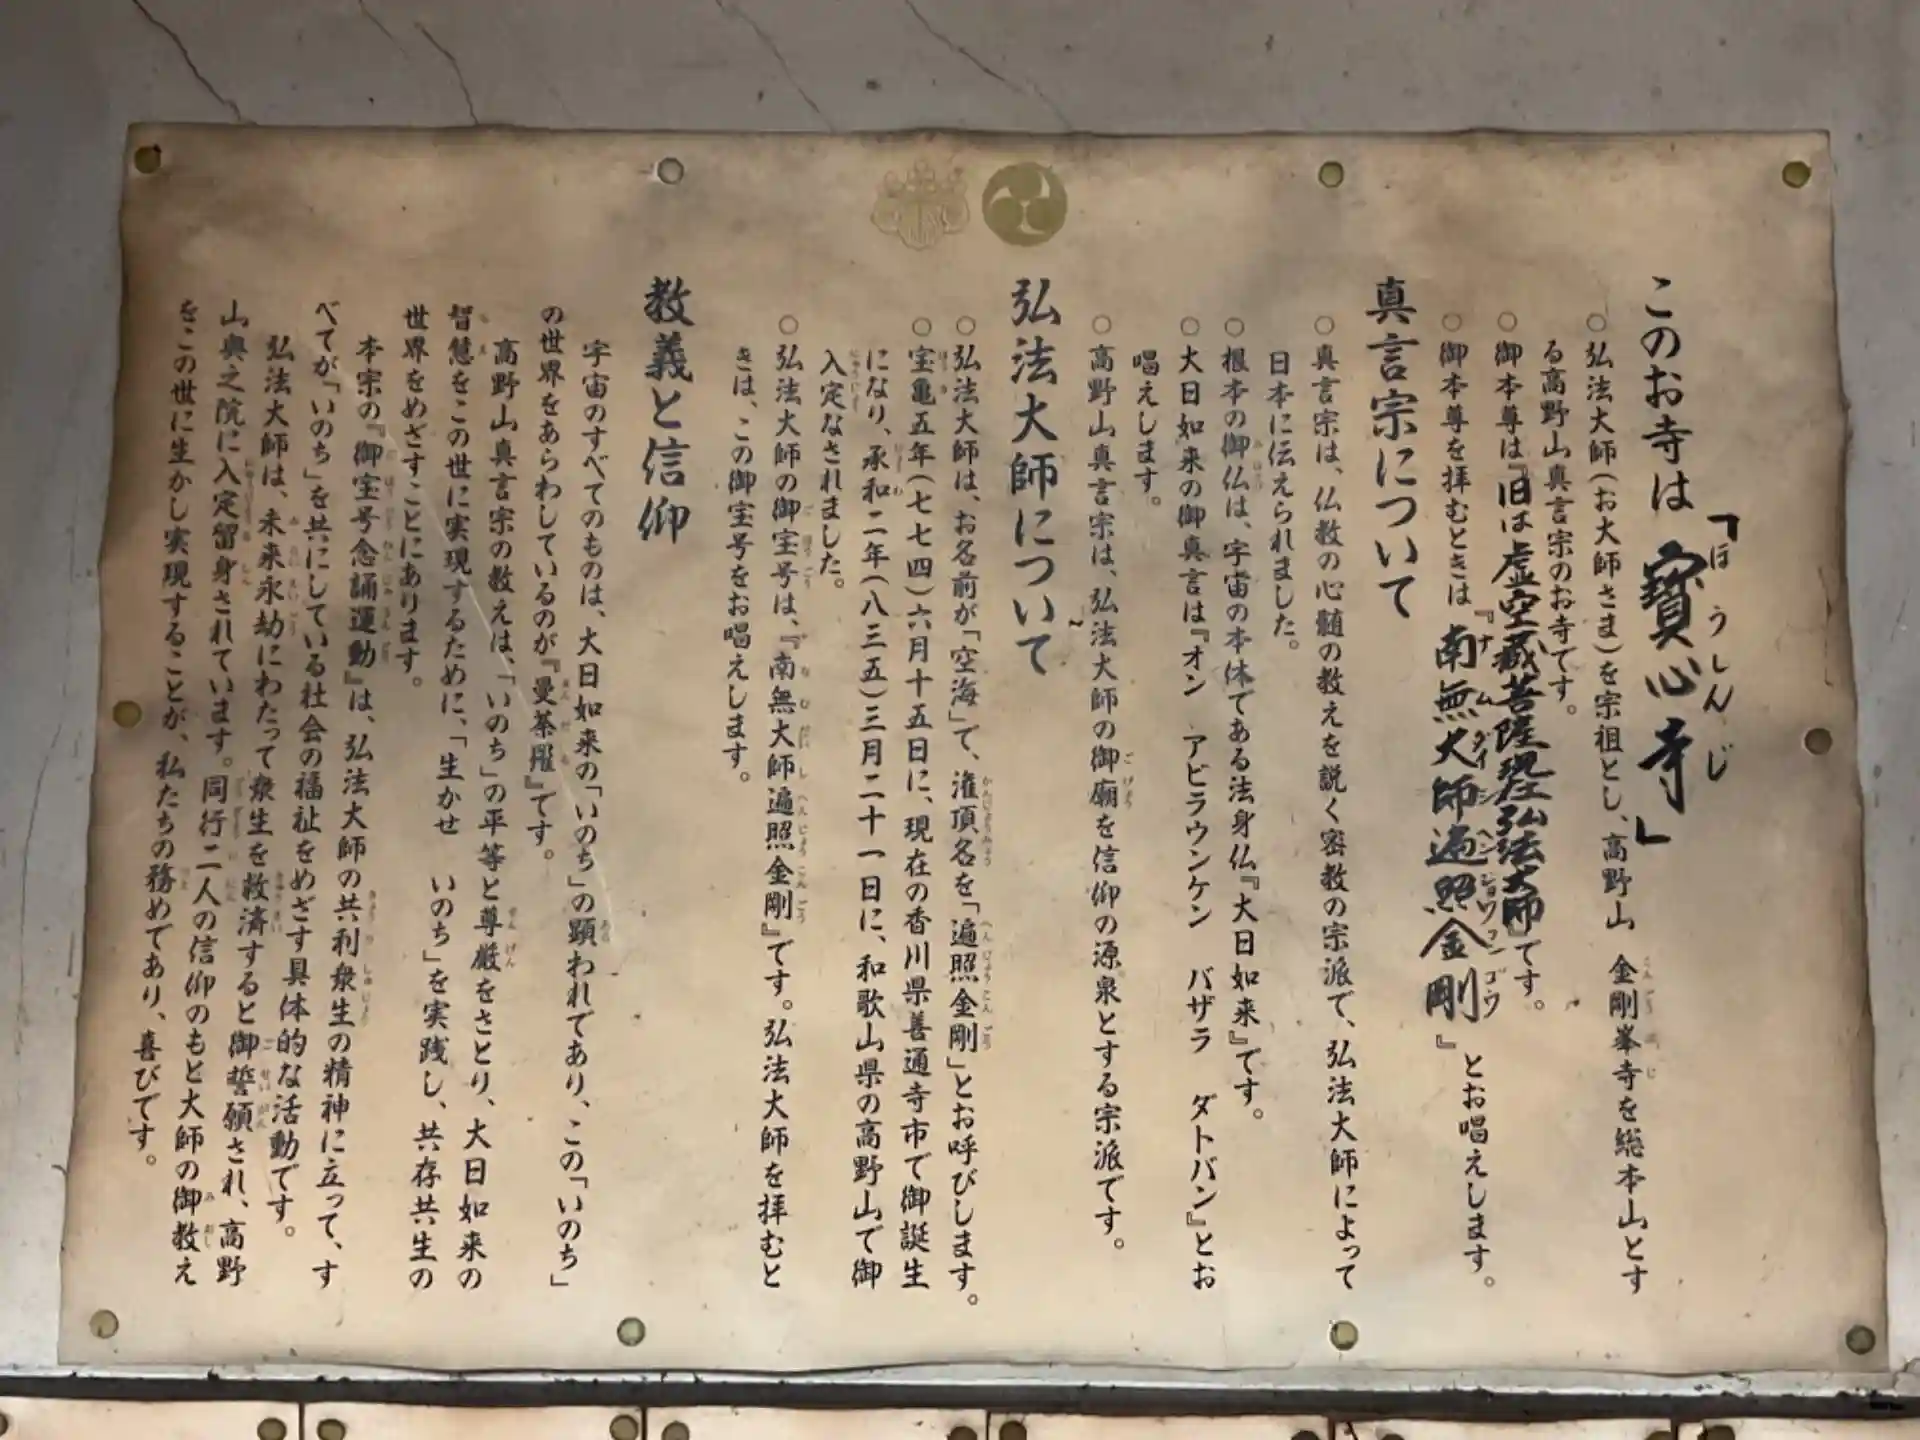 このお寺は「寳心寺」
ほうしんじ
○弘法大師(お大師さま)を宗祖とし、高野山 金剛峯寺を総本山とす
る高野山真言宗のお寺です。
○御本尊は『旧は虚空蔵菩薩現在弘法大師』です。
○御本尊を拝むときは『南無大師遍照金剛』とお唱えします。
ナムダイシヘンジョウコンゴウ
真言宗について
○真言宗は、仏教の心髄の教えを説く密教の宗派で、弘法大師によって
日本に伝えられました。
○根本の御仏は、宇宙の本体である法身仏『大日如来』です。
○大日如来の御真言は『オン アビラウンケン バザラ ダトバン』とお
唱えします。
○高野山真言宗は、弘法大師の御廟を信仰の源泉とする宗派です。
弘法大師について
○弘法大師は、お名前が「空海」で、潅頂名を「遍照金剛」とお呼びします。
○宝亀五年(七七四)六月十五日に、現在の香川県善通寺市で御誕生
になり、承和二年(八三五)三月二十一日に、和歌山県の高野山で御
入定なされました。
○弘法大師の御宝号は、『南無大師遍照金剛』です。弘法大師を拝むと
きは、この御宝号をお唱えします。
教義と信仰
宇宙のすべてのものは、大日如来の「いのち」の顕われであり、この「いのち」
の世界をあらわしているのが『曼荼羅』です。
高野山真言宗の教えは、「いのち」の平等と尊厳をさとり、大日如来の
智慧をこの世に実現するために、「生かせ いのち」を実践し、共存共生の
世界をめざすことにあります。
本宗の『御宝号念誦運動』は、弘法大師の共利衆生の精神に立って、す
べてが「いのち」を共にしている社会の福祉をめざす具体的な活動です。
弘法大師は、未来永劫にわたって衆生を救済すると御誓願され、高野
山奥之院に入定留身されています。同行二人の信仰のもと大師の御教え
をこの世に生かし実現することが、私たちの務めであり、喜びです。